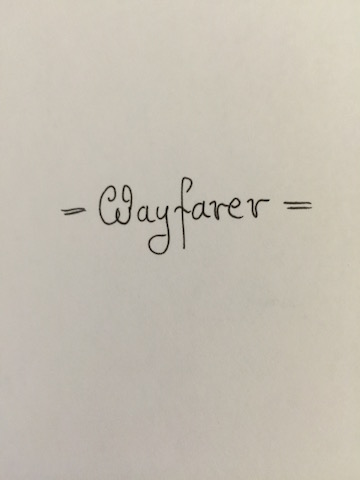 = Wayfarer =